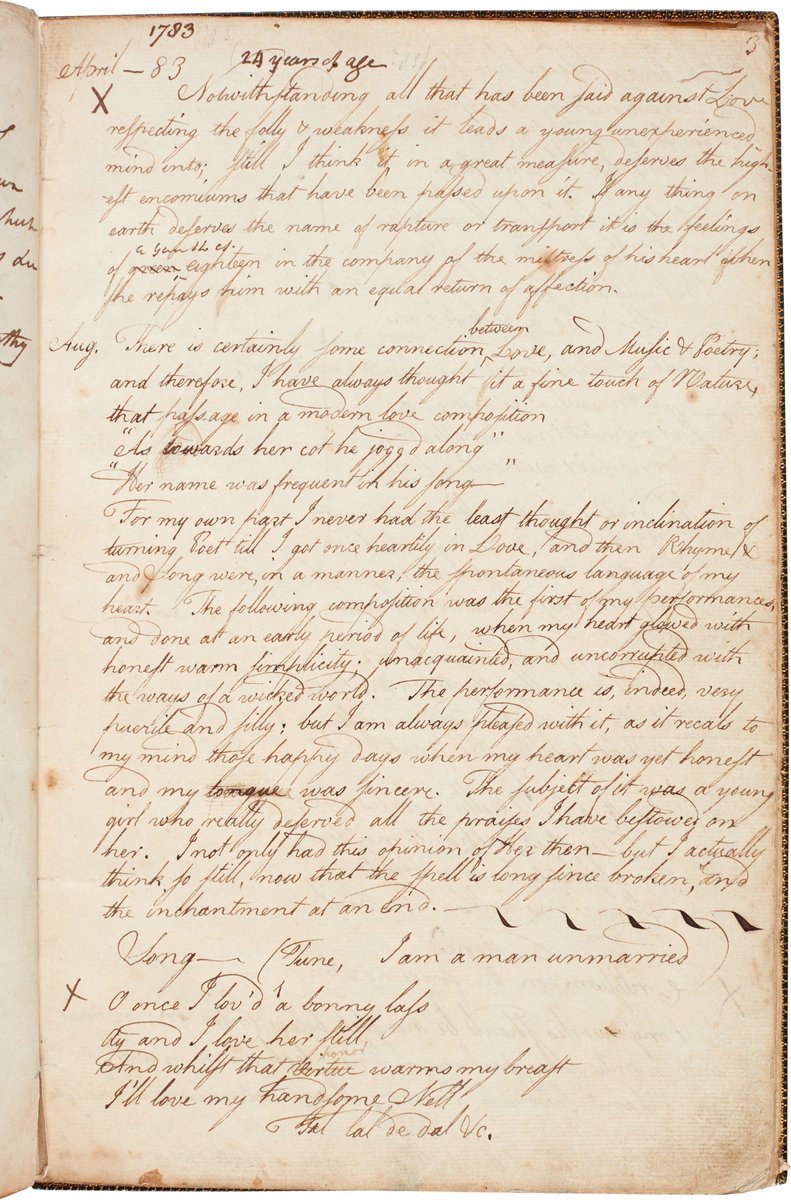 1783
3
April — 83 24 years of age
X Notwithstanding all that has been said against Love
respecting the folly & weakness it leads a young unexperienced
mind into; still I think it, in a great measure, deserves the high-
est encomiums that have been passed upon it. If any thing on
earth deserves the name of rapture or transport it is the feelings
a green
of green eighteen in the company of the mistress of his heart when
she repays him with an equal return of affection.
between
Aug. There is certainly some connection Love, and Music & Poetry;
and therefore, I have always thought it a fine touch of Nature,
that passage in a modern love composition
"As towards her cot he jogg'd along"
"Her name was frequent in his song—"
For my own part I never had the least thought or inclination of
turning Poet till I got once heartily in Love, and then Rhyme &
and Song were, in a manner, the spontaneous language of my
heart. The following composition was the first of my performances,
and done at an early period of life, when my heart glowed with
honest warm simplicity; unacquainted, and uncorrupted with
the ways of a wicked world. The performance is, indeed, very
puerile and silly; but I am always pleased with it, as it recals to
my mind those happy days when my heart was yet honest
and my tongue was sincere. The subject of it was a young
girl who really deserved all the praises I have bestowed on
her. I not only had this opinion of Her then— but I actually
think so still, now that the spell is long since broken, and
the enchantment at an end. —
Song— (Tune, I am a man unmarried)
X O once I lov'd a bonny lass
Ay and I love her still,
honor
And whilst that virtue warms my breast
I'll love my handsome Nell
Fal lal de dal &c.